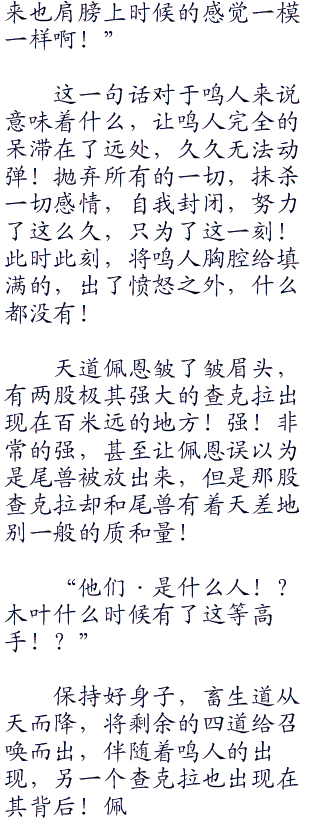 来也肩膀上时候的感觉一模
一样啊！”
这一句话对于鸣人来说
意味着什么，让鸣人完全的
呆滞在了远处，久久无法动
弹！抛弃所有的一切，抹杀
一切感情，自我封闭，努力
了这么久，只为了这一刻！
此时此刻，将鸣人胸腔给填
满的，出了愤怒之外，什么
都没有！
天道佩恩皱了皱眉头，
有两股极其强大的查克拉出
现在百米远的地方！强！非
常的强，甚至让佩恩误以为
是尾兽被放出来，但是那股
查克拉却和尾兽有着天差地
别一般的质和量！
“他们·是什么人！？
木叶什么时候有了这等高
手！？”
保持好身子，畜生道从
天而降，将剩余的四道给召
唤而出，伴随着鸣人的出
现，另一个查克拉也出现在
其背后！佩